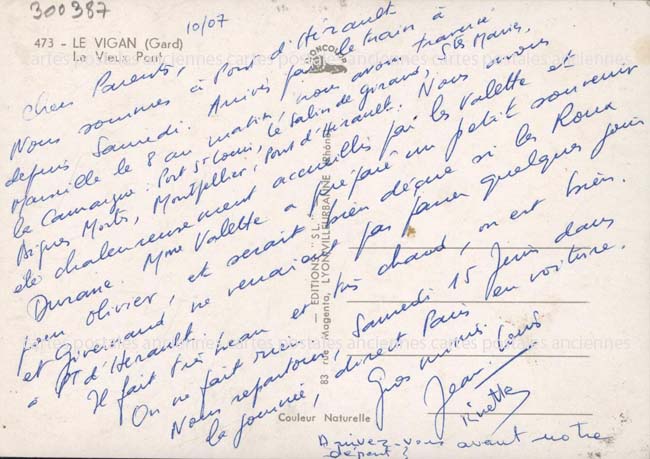 300387
10/07
473 - LE VIGAN (Gard)
Le Vieux Pont
Chers Parents,
Nous sommes à Port d'Hérault
depuis Samedi. Arrivés par le train à
Marseille le 8 au matin, nous avons traversé
la Camargue : Port St Louis, le Salin de Giraud, Stes Maries,
Aigues Mortes, Montpellier, Pont d'Hérault. Nous avons
été chaleureusement accueillis par les Valette et
Durane. Mme Valette a préparé un petit souvenir
pour Olivier, et serait bien déçue si les Roux
et Givernaud ne venaient pas passer quelques jours
à Pt d'Hérault.
Il fait très beau et très chaud, on est bien.
On ne fait rien
Nous repartons Samedi 15 Juin dans
la journée, direct Paris en voiture.
Gros mimis Tous
Jean
Arrivez-vous avant notre
départ ?
IRONCOLOR
EDITIONS "S.L."
83 rue Magenta, LYON-VILLEURBANNE (Rhône)
Couleur Naturelle
cartes postales anciennes